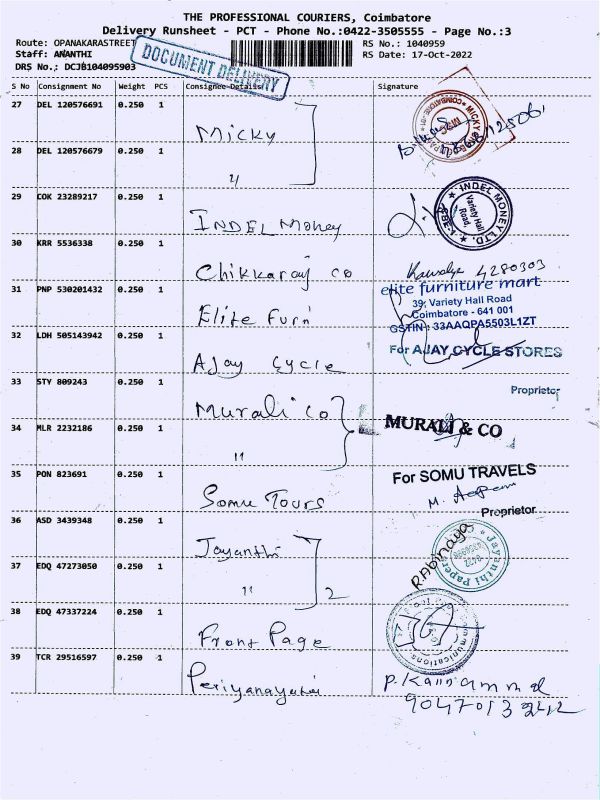 THE PROFESSIONAL COURIERS, Coimbatore
Delivery Runsheet - PCT - Phone No.:0422-3505555 - Page No.:3
Route: OPANAKARASTREET
RS No.: 1040959
Staff: ANANTHI
RS Date: 17-Oct-2022
DRS No.: DCJB104095903
DOCUMENT DELIVERY
S No Consignment No Weight PCS Consignee Details Signature
27 DEL 120576691 0.250 1 Micky
28 DEL 120576679 0.250 1 "
29 COK 23289217 0.250 1 INDEL Money
INDEL MONEY LTD.
Variety Hall
Road,
30 KRR 5536338 0.250 1 Chikkaraj co
4280303
31 PNP 530201432 0.250 1 Elite Furn
elite furniture mart
39, Variety Hall Road
Coimbatore - 641 001
GSTIN: 33AAQPA5503L1ZT
32 LDH 505143942 0.250 1 Ajay Cycle
For AJAY CYCLE STORES
Proprietor
33 STY 809243 0.250 1 Murali Co
34 MLR 2232186 0.250 1 "
MURALI & CO
35 PON 823691 0.250 1 Somu Tours
For SOMU TRAVELS
Proprietor
36 ASD 3439348 0.250 1 Jayanthi
R. Abinaya
Jayanthi Paper
37 EDQ 47273050 0.250 1 " 2
38 EDQ 47337224 0.250 1 Front Page
39 TCR 29516597 0.250 1 Periyanayaki
P. Kannammal